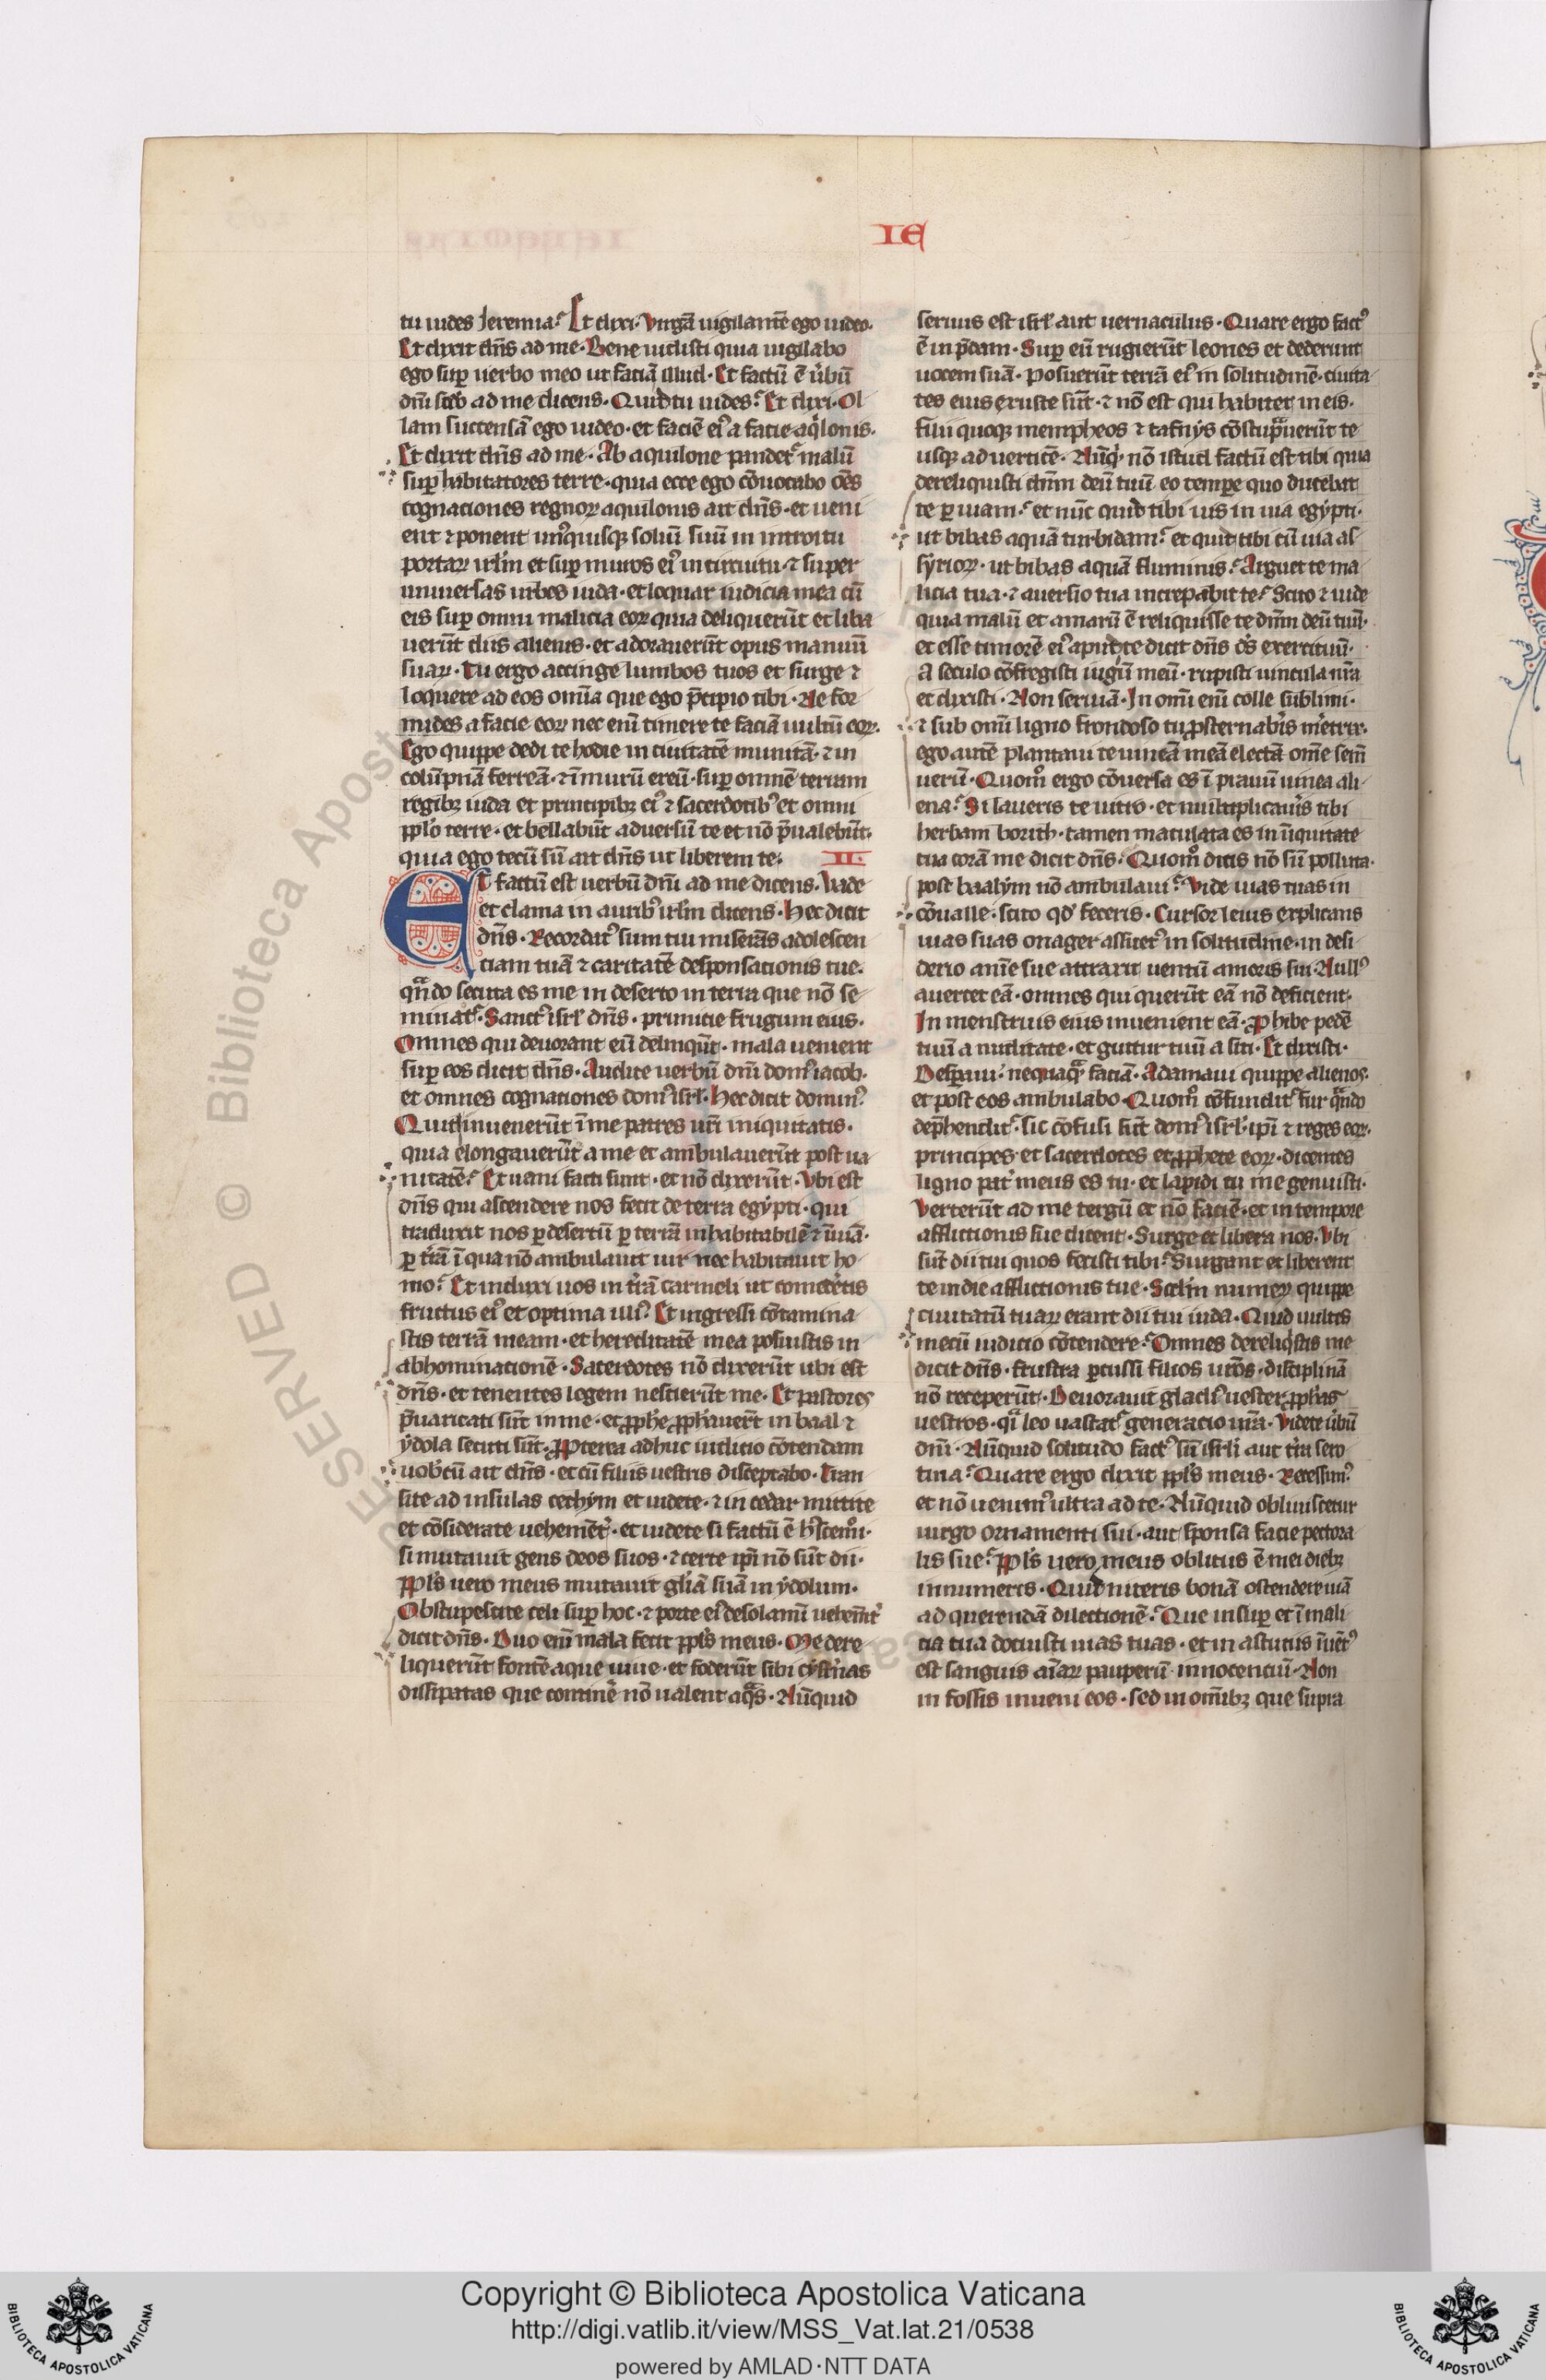 IE
tu uides Jeremia? Et dixi. Virgã uigilantẽ ego uideo.
Et dixit dñs ad me. Bene uidisti quia uigilabo
ego sup uerbo meo ut faciã illud. Et factũ ẽ ũbũ
dñi scdo ad me dicens. Quid tu uides? Et dixi. Ol
lam succensã ego uideo. et faciẽ eiꝰ a facie aqͥlonis.
Et dixit dñs ad me. Ab aquilone pandet᷑ malũ
sup habitatores terre. quia ecce ego cõuocabo oẽs
cognationes regnoꝝ aquilonis ait dñs. et ueni
ent ⁊ ponent unꝰquisqꝫ soliũ suũ in introitu
portaꝝ irl̃m et sup muros eiꝰ in circuitu. ⁊ super
uniuersas urbes iuda. et loquar iudicia mea cũ
eis sup omni malicia eoꝝ quia deliquerũt et liba
uerũt diis alienis. et adorauerũt opus manuũ
suaꝝ. Tu ergo accinge lumbos tuos et surge ⁊
loquere ad eos om̃ia que ego p̃cipio tibi. Ne for
mides a facie eoꝝ nec eni timere te faciã uultũ eoꝝ.
Ego quippe dedi te hodie in ciuitatẽ munitã. ⁊ in
colũpnã ferreã. ⁊ ĩ murũ ereũ. sup omnẽ terram
regibꝫ iuda et principibꝫ eiꝰ ⁊ sacerdotibꝰ et omni
pplo terre. et bellabũt aduersũ te et nõ p̃ualebũt.
quia ego tecũ sũ ait dñs ut liberem te. II.
Et factũ est uerbũ dñi ad me dicens. Vade
et clama in auribꝰ irl̃m dicens. Hec dicit
dñs. Recordatꝰ sum tui miserãs adolescen
ciam tuã ⁊ caritatẽ desponsationis tue.
qñdo secuta es me in deserto in terra que nõ se
minat᷑. Sanctꝰ isrl̃ dñs. primicie frugum eius.
Omnes qui deuorant eũ delinqũt. mala uenient
sup eos dicit dñs. Audite uerbũ dñi domꝰ iacob.
et omnes cognationes domꝰ isrl̃. Hec dicit dominꝰ.
Quid inuenerũt ĩ me patres urĩ iniquitatis.
quia elongauerũt a me et ambulauerũt post ua
nitatẽ? Et uani facti sunt. et nõ dixerũt. Vbi est
dñs qui ascendere nos fecit de terra egypti. qui
traduxit nos p desertũ p terrã inhabitabilẽ ⁊ ĩuiã.
p t̃rã ĩ qua nõ ambulauit uir nec habitauit ho
mo? Et induxi uos in t̃rã carmeli ut comedẽtis
fructus eiꝰ et optima illiꝰ. Et ingressi cõtamina
stis terrã meam. et hereditatẽ mea posuistis in
abhominationẽ. Sacerdotes nõ dixerũt ubi est
dñs. et tenentes legem nescierũt me. Et pastores
p̃uaricati sũt in me. et pphe pphauer̃t in baal ⁊
ydola secuti sũt. Propterea adhuc iudicio cõtendam
uobcũ ait dñs. et cũ filiis uestris disceptabo. Tran
site ad insulas cethym et uidete. ⁊ in cedar mittite
et cõsiderate uehemẽt᷑. et uidete si factũ ẽ hͥscemõi.
si mutauit gens deos suos. ⁊ certe ipĩ nõ sũt dii.
Ppls uero meus mutauit gl̃iã suã in ydolum.
Obstupescite celi sup hoc. ⁊ porte eiꝰ desolamĩ uehem̃t᷑
dicit dñs. Duo eni mala fecit ppls meus. Me dere
liquerũt fontẽ aque uiue. et foderũt sibi cyst̃nas
dissipatas que continẽ nõ ualent aq̃s. Nũquid
seruus est isrl̃ aut uernaculus. Quare ergo factꝰ
ẽ in p̃dam. Sup eũ rugierũt leones et dederunt
uocem suã. posuerũt terrã eiꝰ in solitudinẽ. ciuita
tes eius exuste sũt. ⁊ nõ est qui habitet in eis.
filii quoqꝫ mempheos ⁊ tafnys cõstup̃uerũt te
usqꝫ ad uerticẽ. Nũqͥ nõ istud factũ est tibi quia
dereliquisti dñm deũ tuũ eo tempe quo ducebat
te p uiam? et nũc quid tibi uis in uia egypti.
ut bibas aquã turbidam? et quid tibi cũ uia as
syrioꝝ. ut bibas aquã fluminis? Arguet te ma
licia tua. ⁊ auersio tua increpabit te? Scito ⁊ uide
quia malũ et amarũ ẽ reliquisse te dñm deũ tuũ.
et esse timorẽ eiꝰ apud te dicit dñs ds exercituũ.
A seculo cõfregisti iugũ meũ. rupisti uincula m̃a
et dixisti. Non seruiã. In omi eni colle sublimi.
⁊ sub omi ligno frondoso tu psternabris m̃etrix.
ego autẽ plantaui te uineã meã electã om̃e sem̃
uerũ. Quom̊ ergo cõuersa es ĩ prauũ uinea ali
ena? Si laueris te nitro. et multiplicaũis tibi
herbam borith. tamen maculata es in iniquitate
tua corã me dicit dñs. Quom̊ dicis nõ sũ polluta.
post baalym nõ ambulaui? Vide uias tuas in
cõualle. scito qd feceris. Cursor leuis explicans
uias suas onager assuetꝰ in solitudine. in desi
derio anĩe sue attraxit uentũ amoris sui. Nullꝰ
auertet eã. omnes qui querũt eã nõ deficient.
In menstruis eius inuenient eã. prohibe pedẽ
tuũ a nuditate. et guttur tuũ a siti. Et dixisti.
Despaui. nequaq̃ faciã. Adamaui quippe alienos.
et post eos ambulabo. Quom̊ cõfundit᷑ fur q̃ndo
dep̃hendit᷑. sic cõfusi sũt domꝰ isrl̃. ipĩ ⁊ reges eoꝝ.
principes et sacerdotes et pphete eoꝝ. dicentes
ligno pat᷑ meus es tu. et lapidi tu me genuisti.
Verterũt ad me tergũ et nõ faciẽ. et in tempore
afflictionis sue dicent. Surge et libera nos. Vbi
sũt dii tui quos fecisti tibi? Surgant et liberent
te in die afflictionis tue. Scdm numeꝝ quippe
ciuitatũ tuaꝝ erant dii tui iuda. Quid uultis
mecũ iudicio cõtendere? Omnes dereliqͥstis me
dicit dñs. frustra pcussi filios uros. disciplinã
nõ receperũt. Deuorauit gladiꝰ uester pphas
uestros. qͣ leo uastat᷑ generacio ur̃a. Videte ũbũ
dñi. Nũquid solitudo factꝰ sũ isrl̃i aut t̃ra sero
tina? Quare ergo dixit ppls meus. Recessimꝰ.
et nõ uenimꝰ ultra ad te. Nũquid obliuiscetur
uirgo ornamenti sui. aut sponsa facie pectora
lis sue? Ppls uero meus oblitus ẽ mei diebꝫ
innumeris. Quid niteris bonã ostendere uiã
ad querendã dilectionẽ? Que insup et ĩ mali
cia tua docuisti uias tuas. et in astutiis ĩuẽtꝰ
est sanguis aĩaꝝ pauperũ innocenciũ. Non
in fossis inueni eos. sed in om̃ibꝫ que supra
RESERVED © Biblioteca Apost
Copyright © Biblioteca Apostolica Vaticana
http://digi.vatlib.it/view/MSS_Vat.lat.21/0538
powered by AMLAD·NTT DATA
BIBLIOTECA APOSTOLICA VATICANA
BIBLIOTECA APOSTOLICA VATICANA